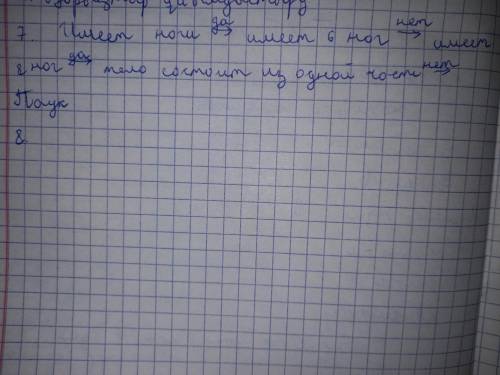 7. Имеет ноги да→ имеет 6 ног нет→ имеет
8 ног да→ тело состоит из одной части нет→
Паук
8.